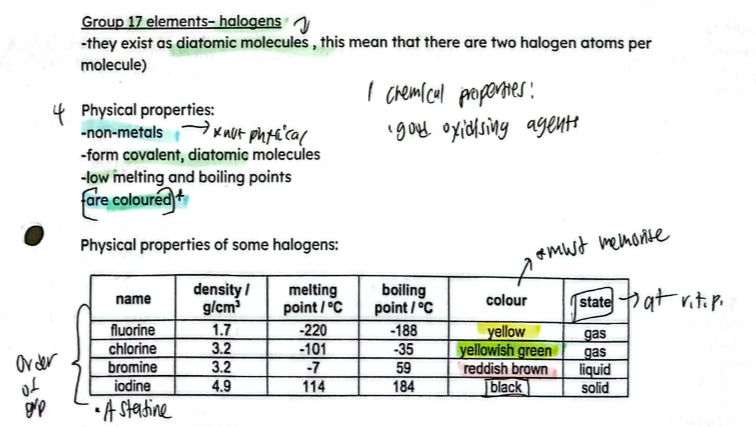 Group 17 elements– halogens
-they exist as diatomic molecules , this mean that there are two halogen atoms per
molecule)
1 chemical properties:
4 Physical properties:
· good oxidising agents
-non-metals → * not physical
-form covalent, diatomic molecules
-low melting and boiling points
-[are coloured]*
Physical properties of some halogens:
* must memorise
name density / g/cm³ melting point / °C boiling point / °C colour state → at r.t.p.
fluorine 1.7 -220 -188 yellow gas
chlorine 3.2 -101 -35 yellowish green gas
bromine 3.2 -7 59 reddish brown liquid
iodine 4.9 114 184 black solid
order
of
grp
· Astatine